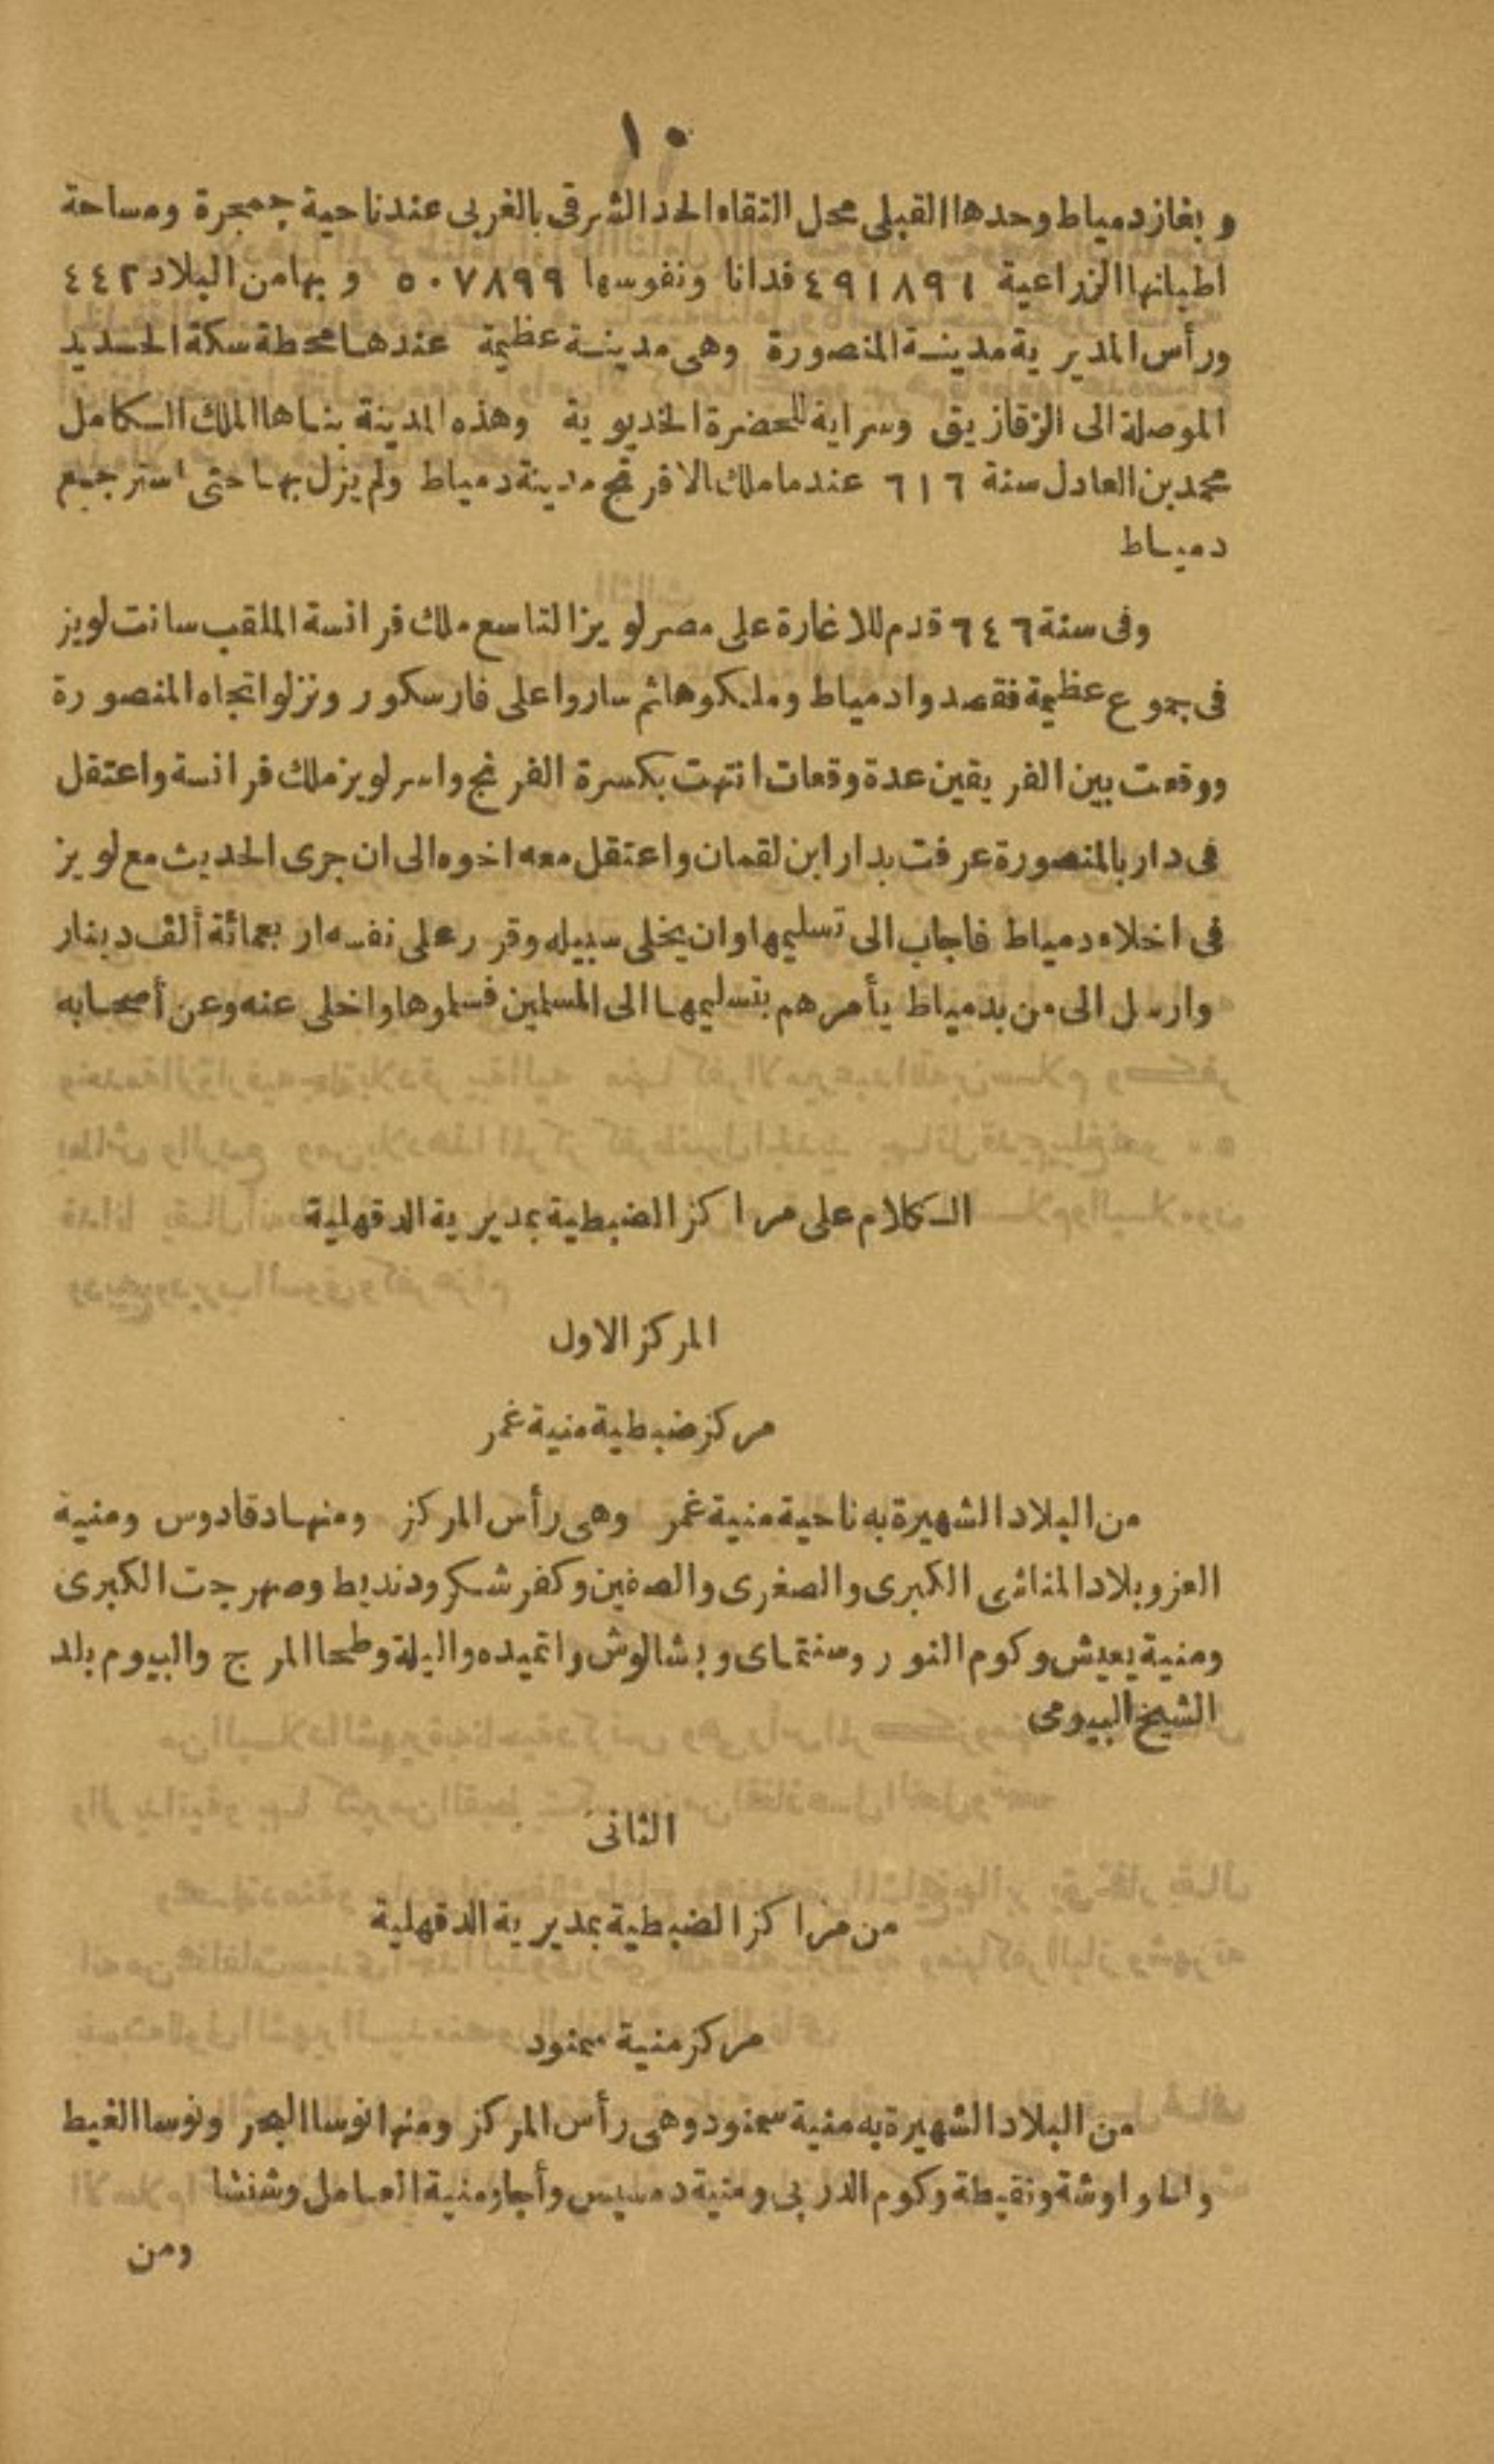 ١٠
و بغاز دمياط وحدها القبلى محل التقاء الحد الشرقى بالغربى عند ناحية جمجرة ومساحة
اطيانها الزراعية ٤٩١٨٩١ فدانا ونفوسها ٥٠٧٨٩٩ و بها من البلاد ٤٤٢
ورأس المديرية مدينة المنصورة وهى مدينة عظيمة عندها محطة سكة الحديد
الموصلة الى الزقازيق وسراية للحضرة الخديوية وهذه المدينة بناها الملك الكامل
محمد بن العادل سنة ٦١٦ عندما ملك الافرنج مدينة دمياط ولم يزل بها حتى استرجع
دمياط
وفى سنة ٦٤٦ قدم للاغارة على مصر لويز التاسع ملك فرانسة الملقب سانت لويز
فى جموع عظيمة فقصدوا دمياط وملكوها ثم ساروا على فارسكور ونزلوا تجاه المنصورة
ووقعت بين الفريقين عدة وقعات انتهت بكسرة الفرنج واسر لويز ملك فرانسة واعتقل
فى دار بالمنصورة عرفت بدار ابن لقمان واعتقل معه اخوه الى ان جرى الحديث مع لويز
فى اخلاء دمياط فاجاب الى تسليمها وان يخلى سبيله وقرر على نفسه اربعمائة ألف دينار
وارسل الى من بدمياط يأمرهم بتسليمها الى المسلمين فسلموها واخلى عنه وعن أصحابه
الكلام على مراكز الضبطية بمديرية الدقهلية
المركز الاول
مركز ضبطية منية غمر
من البلاد الشهيرة به ناحية منية غمر وهى رأس المركز ومنها دقادوس ومنية
العز وبلاد المنائى الكبرى والصغرى والصفين وكفر شكر ودنديط وصهرجت الكبرى
ومنية يعيش وكوم النور وسنتماى و بشالوش واتميده واليلة وطحا المرج والبيوم بلد
الشيخ البيومى
الثانى
من مراكز الضبطية بمديرية الدقهلية
مركز منية سمنود
من البلاد الشهيرة به منية سمنود وهى رأس المركز ومنها نوسا البحر ونوسا الغيط
ونقيطة وكوم الدربى ومنية دمسيس وأجا ومنية العامل وشنشا
ومن